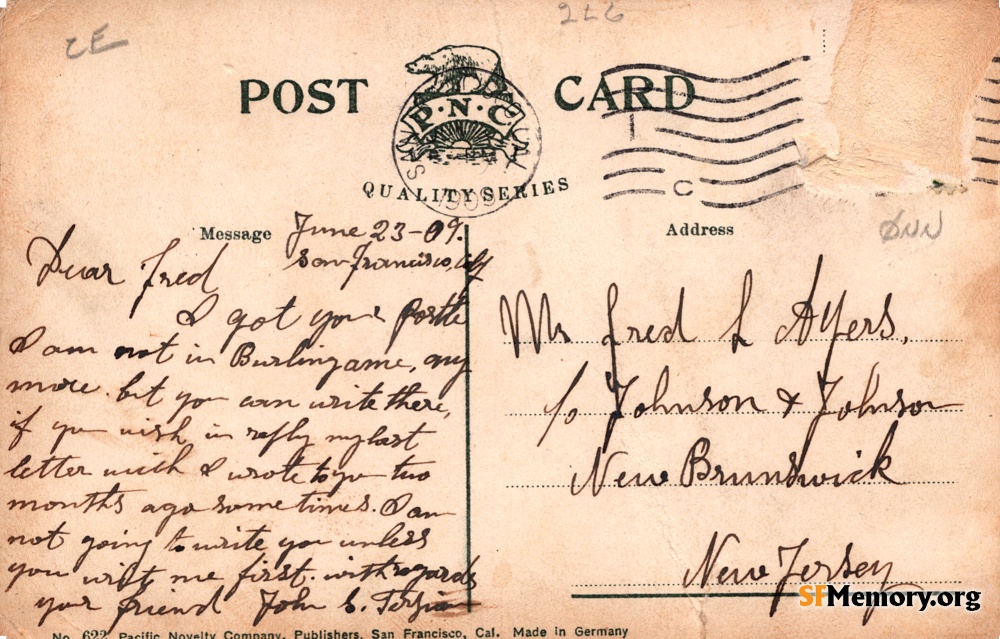 POST CARD
P·N·C
QUALITY SERIES
1909
C
Message
Address
June 23-09.
San Francisco, Cal
Dear Fred
I got your Postle
I am not in Burlingame, any
more. but you can write there,
if you wish, in reply my last
letter wich I wrote to you two
months ago sometimes. I am
not going to write you unless
you writ me first. with regards
your friend John S.
Mr Fred L Ayers,
c/o Johnson & Johnson
New Brunswick
New Jersey
No. 622 Pacific Novelty Company, Publishers, San Francisco, Cal. Made in Germany
SFMemory.org